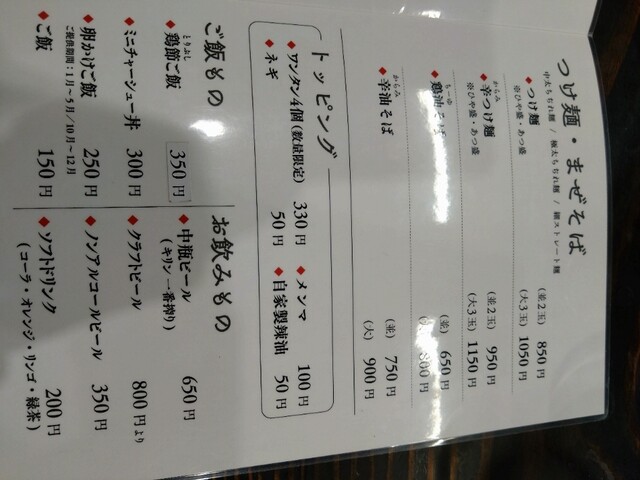 つけ麺・まぜそば
中太ちぢれ麺 / 極太ちぢれ麺 / 細ストレート麺
◆つけ麺 (並2玉) 850円
※ひや盛・あつ盛 (大3玉) 1050円
からみ
◆辛つけ麺 (並2玉) 950円
※ひや盛・あつ盛 (大3玉) 1150円
ちーゆ
◆鶏油そば (並) 650円
(大) 800円
からみ
◆辛油そば (並) 750円
(大) 900円
トッピング
◆ワンタン4個(数量限定) 330円
◆メンマ 100円
◆ネギ 50円
◆自家製辣油 50円
ご飯もの
とりぶし
◆鶏節ご飯 350円
◆ミニチャーシュー丼 300円
◆卵かけご飯 250円
ご提供期間:1月~5月/10月~12月
◆ご飯 150円
お飲みもの
◆中瓶ビール 650円
(キリン一番搾り)
◆クラフトビール 800円より
◆ノンアルコールビール 350円
◆ソフトドリンク 200円
(コーラ・オレンジ・リンゴ・緑茶)